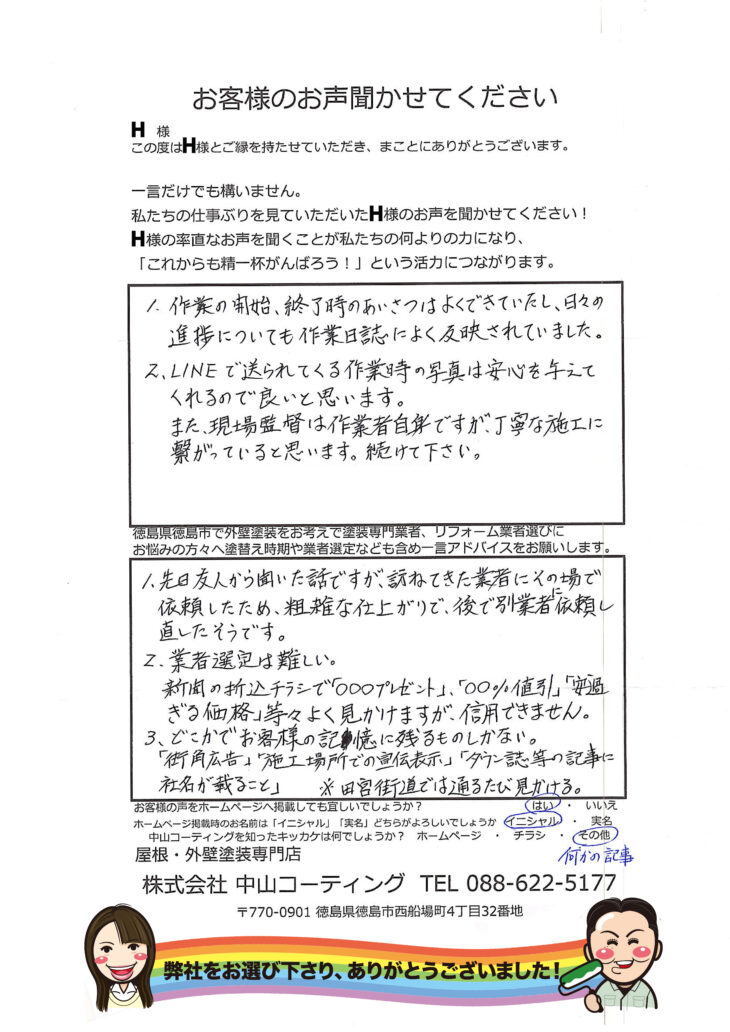 お客様のお声聞かせてください
H 様
この度はH様とご縁を持たせていただき、まことにありがとうございます。
一言だけでも構いません。
私たちの仕事ぶりを見ていただいたH様のお声を聞かせてください！
H様の率直なお声を聞くことが私たちの何よりの力になり、
「これからも精一杯がんばろう！」という活力につながります。
1. 作業の開始、終了時のあいさつはよくできていたし、日々の
進捗についても作業日誌によく反映されていました。
2、LINEで送られてくる作業時の写真は安心を与えて
くれるので良いと思います。
また、現場監督は作業者自身ですが、丁寧な施工に
繋がっていると思います。続けて下さい。
徳島県徳島市で外壁塗装をお考えで塗装専門業者、リフォーム業者選びに
お悩みの方々へ塗替え時期や業者選定なども含め一言アドバイスをお願いします。
1、先日友人から聞いた話ですが、訪ねてきた業者にその場で
依頼したため、粗雑な仕上がりで、後で別業者に依頼し
直したそうです。
2、業者選定は難しい。
新聞の折込チラシで「○○○プレゼント」、「○○%値引」「安過
ぎる価格」等々よく見かけますが、信用できません。
3、どこかでお客様の記憶に残るものしかない。
「街角広告」「施工場所での宣伝表示」「タウン誌等の記事に
社名が載ること」 ※田宮街道では通るたび見かける。
お客様の声をホームページへ掲載しても宜しいでしょうか？ はい ・ いいえ
ホームページ掲載時のお名前は「イニシャル」「実名」どちらがよろしいでしょうか イニシャル ・ 実名
中山コーティングを知ったキッカケは何でしょうか？ ホームページ ・ チラシ ・ その他
何かの記事
屋根・外壁塗装専門店
株式会社 中山コーティング TEL 088-622-5177
〒770-0901 徳島県徳島市西船場町4丁目32番地
弊社をお選び下さり、ありがとうございました！